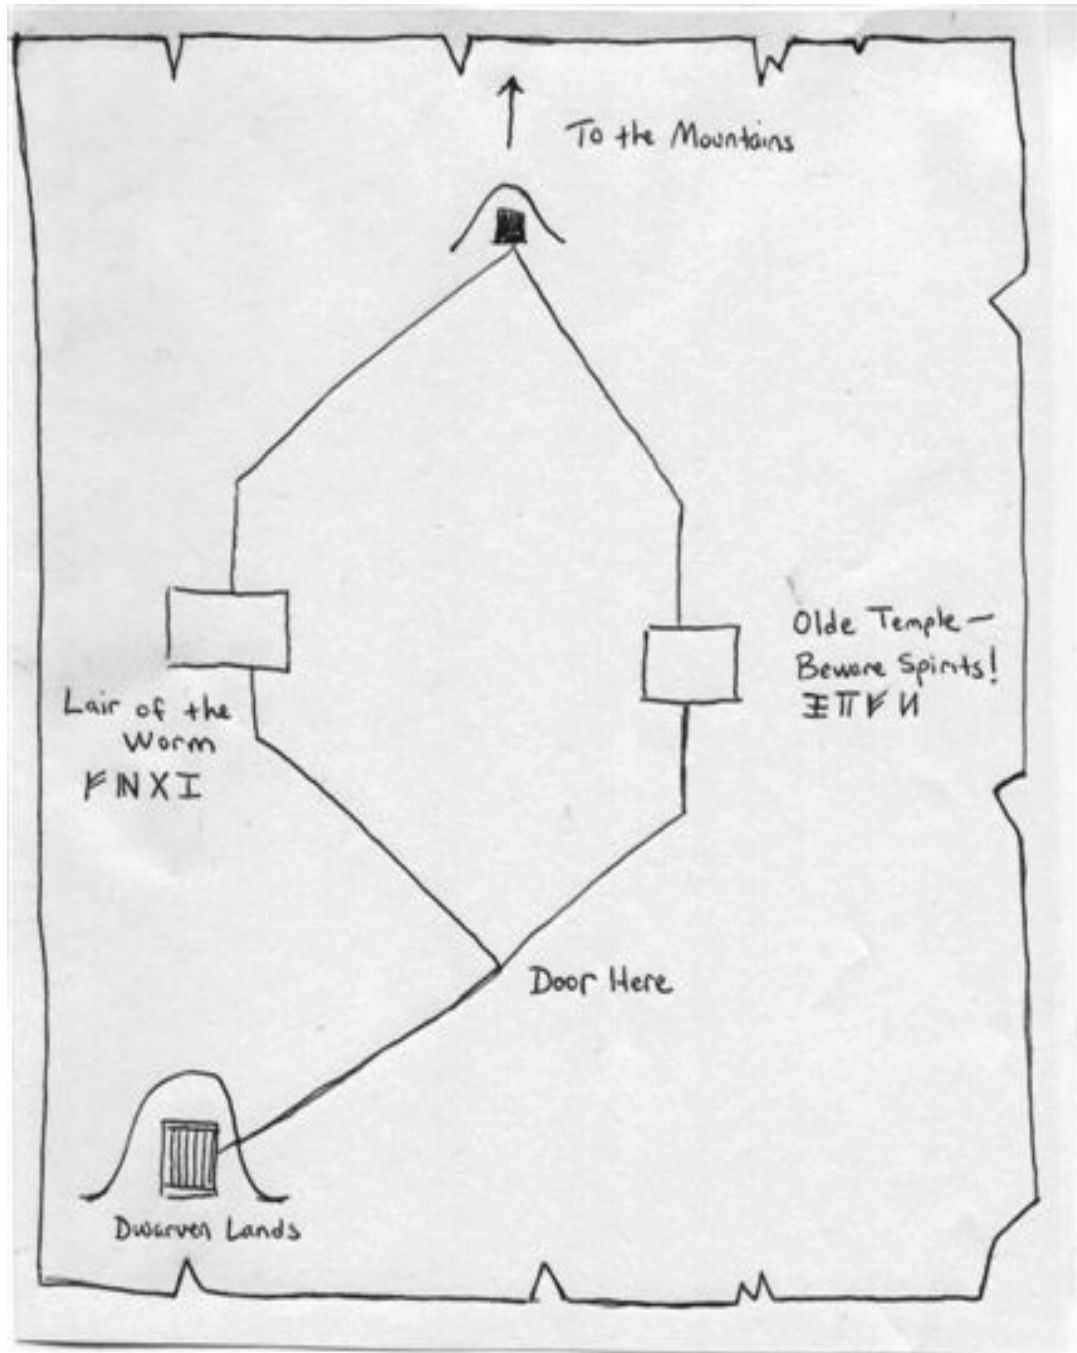 To the Mountains
Olde Temple —
Beware Spirits!
Lair of the
Worm
Door Here
Dwarven Lands